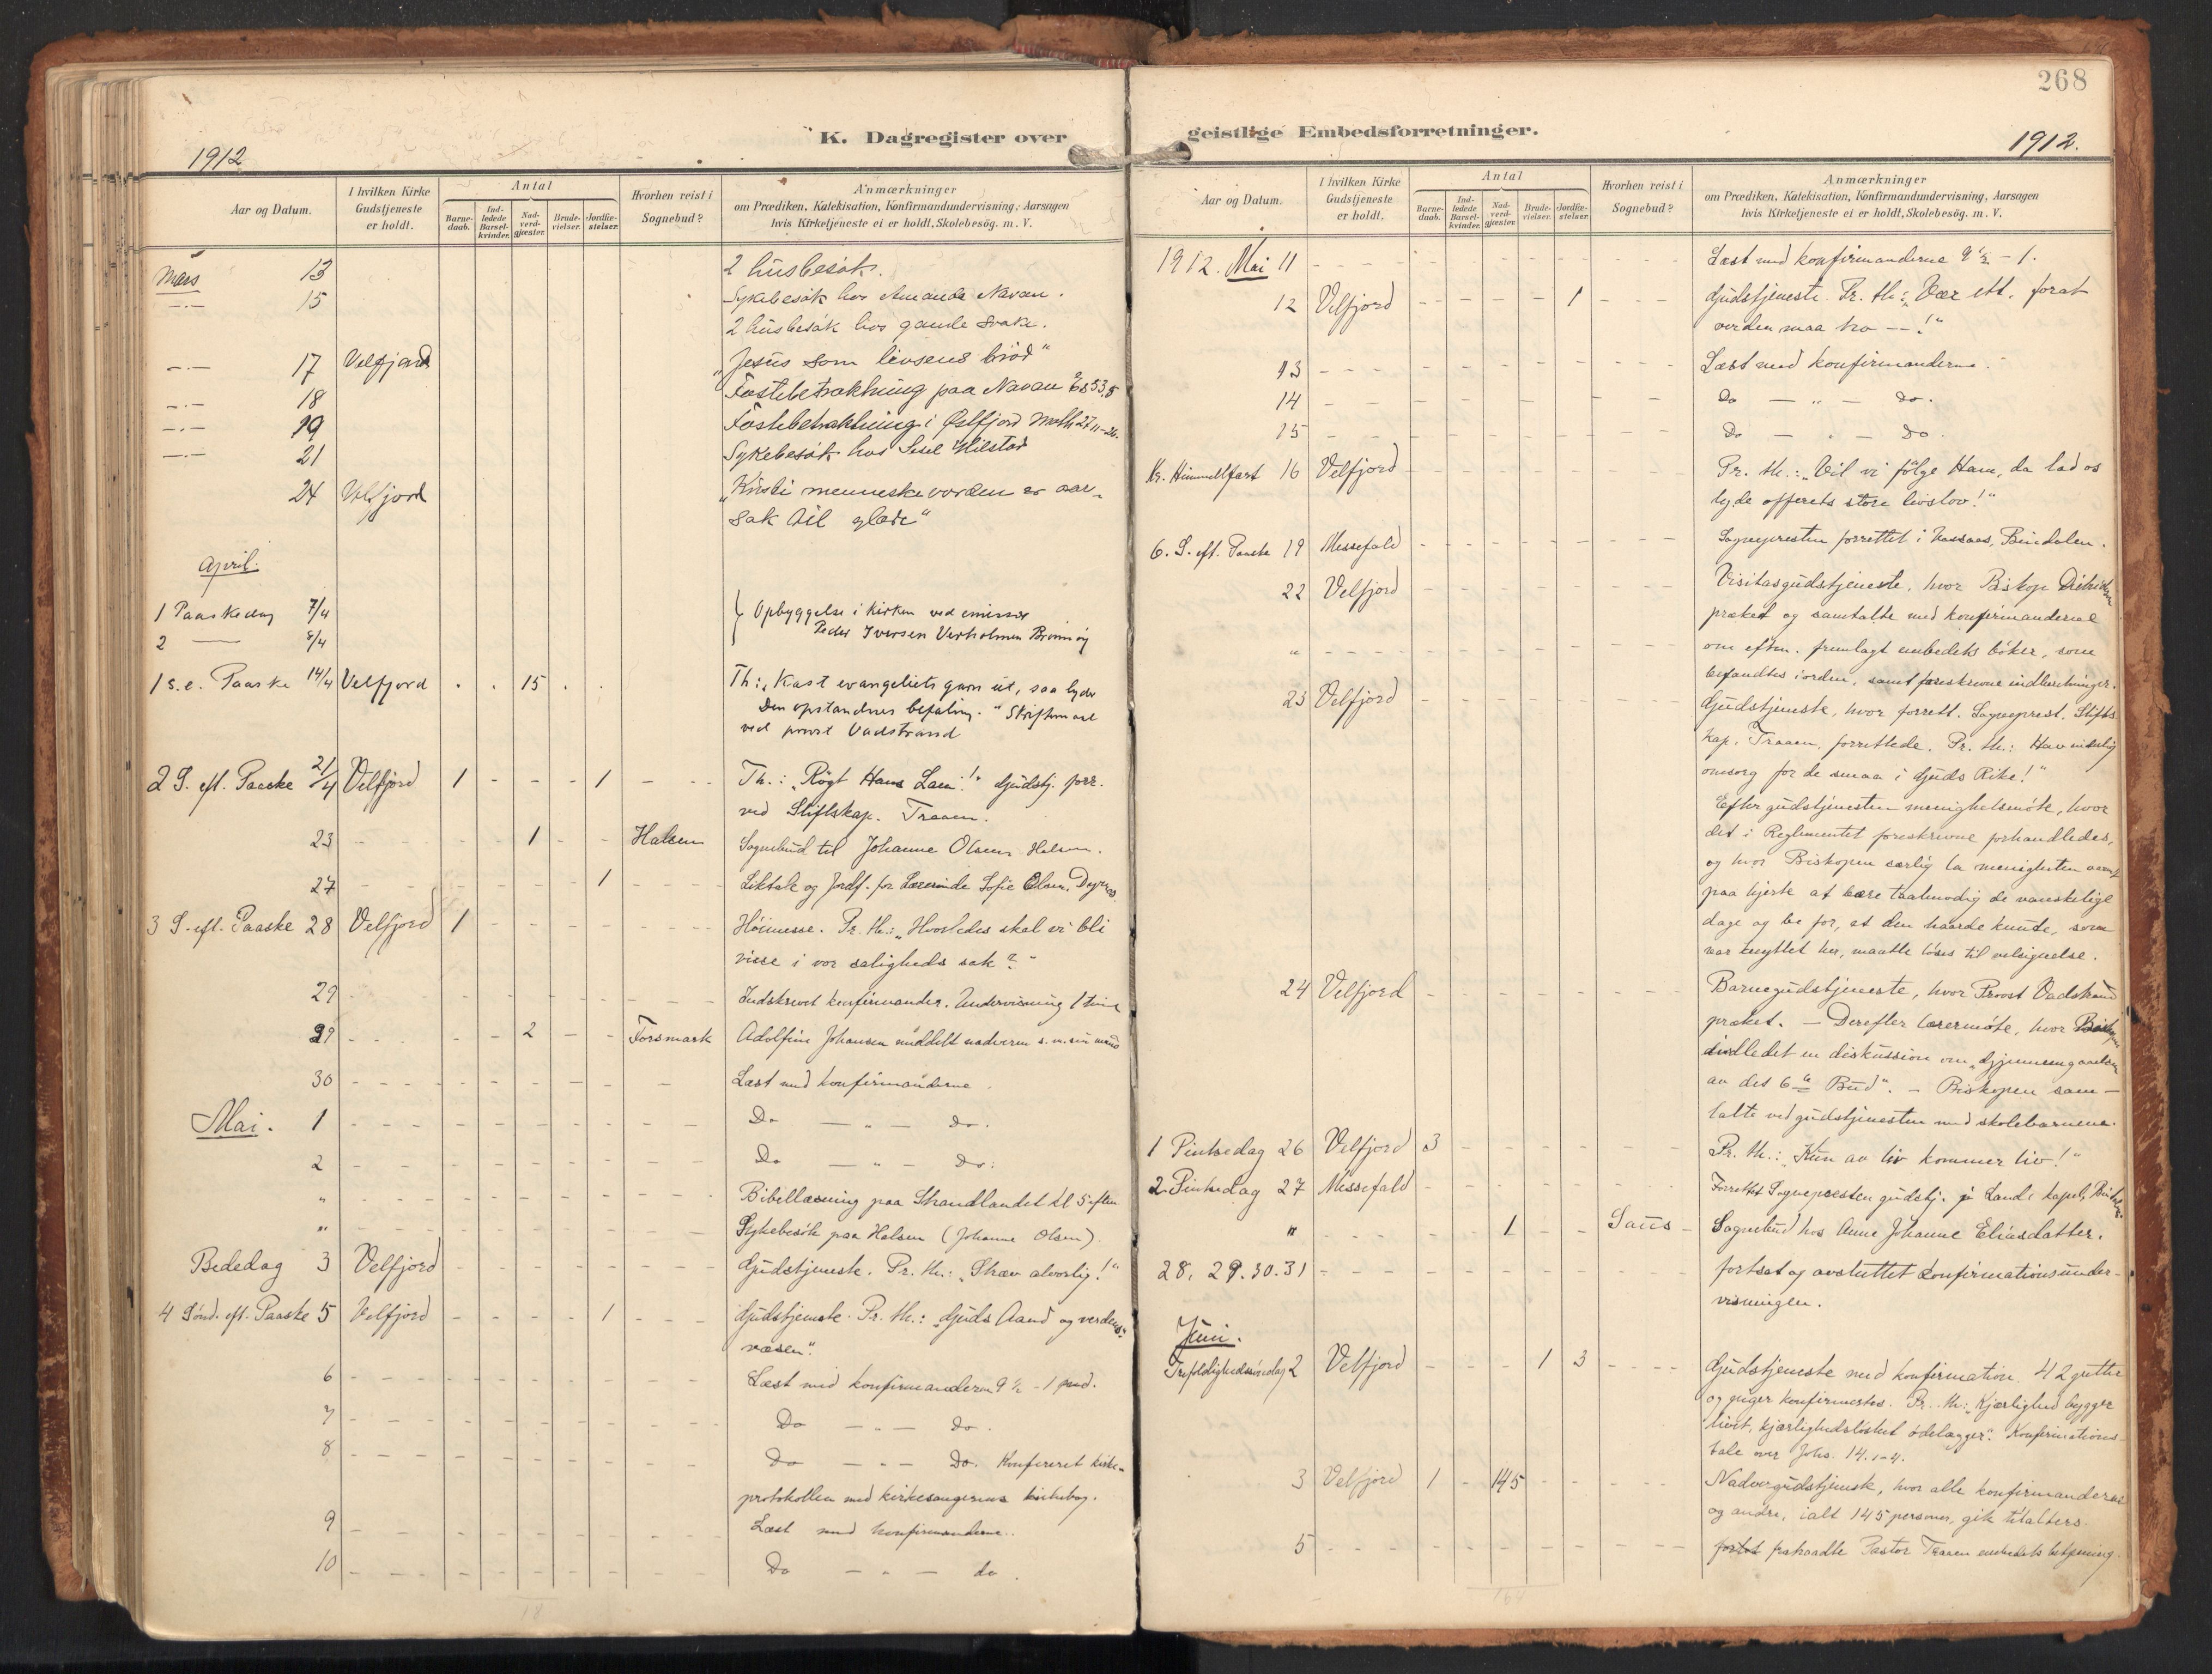 268
K. Dagregister over
geistlige Embedsforretninger.
1912
1912.
Aar og Datum.
I hvilken Kirke Gudstjeneste er holdt.
Antal
Barnedaab.
Indledede Barselkvinder.
Nadverdgjæster.
Brudevielser.
Jordfæstelser.
Hvorhen reist i Sognebud?
Anmærkninger
om Prædiken, Katekisation, Konfirmandundervisning, Aarsagen
hvis Kirketjeneste ei er holdt, Skolebesög. m. V.
Mars 13 2 husbesøk.
—·— 15 Sykebesøk hos Amanda Navan.
2 husbesøk hos gamle svake.
—·— 17 Velfjord "Jesus som livsens brød"
—·— 18 Fastebetraktning paa Navan Es 53,5
—·— 19 Fastebetraktning i Østfjord Math 27 11-26.
—·— 21 Sykebesøk hos Sisel Hilstad
24 Velfjord "Kristi menneskevorden er aar-
sak til glæde"
April.
1 Paaskedag 7/4 } Opbyggelse i kirken ved emissær
2 — 8/4 Peder Iversen Verholmen Brønnøy
1 s. e. Paaske 14/4 Velfjord . . 15 . . Th: "Kast evangeliets garn ut, saa lyder
den opstandnes befaling." Skriftemaal
ved provst Vadstrand
2 S. eft. Paaske 21/4 Velfjord 1 - - - 1 - - Th.: "Røgt Hans Lam!" Gudstj. forr.
ved Stiftskap. Traaen.
23 - - - 1 - - Halsen Sognebud til Johanne Olsen, Halsen.
27 - - - - 1 - - Liktale og Jordf. for Lærerinde Sofie Olsen,
3 S. eft. Paaske 28 Velfjord 1 - - - - - - Høimesse. Pr. th.: "Hvorledes skal vi bli
visse i vor saligheds sak?"
29 - - - - - - Indskrevet konfirmander. Undervisning 1 time
29 - - - 2 - - Forsmark Adolfine Johansen meddelt nadveren s. m. sin mand
30 - - - - - - Læst med konfirmanderne.
Mai. 1 - - - - - - Do — " — do.
2 - - - - - - Do — " — do.
" - - - - - - Bibellæsning paa Strandlandet kl 5 eftm
" - - - - - - Sykebesøk paa Halsen (Johanne Olsen).
Bededag 3 Velfjord - - - - - - Gudstjeneste. Pr. th.: "Stræv alvorlig!"
4 Sønd. eft. Paaske 5 Velfjord - - - - 1 - - Gudstjeneste. Pr. th.: "Guds Aand og verdens
væsen".
6 - - - - - - Læst med konfirmanderne 9 1/2 - 1
7 - - - - - - Do — " — do.
8 - - - - - - Do — " — Do. Konfereret kirke-
protokollen med kirkesangerens kirkebog.
9 - - - - - - Læst med konfirmanderne.
10 - - - - - - Do — " — do.
18
Aar og Datum.
I hvilken Kirke Gudstjeneste er holdt.
Antal
Barnedaab.
Indledede Barselkvinder.
Nadverdgjæster.
Brudevielser.
Jordfæstelser.
Hvorhen reist i Sognebud?
Anmærkninger
om Prædiken, Katekisation, Konfirmandundervisning, Aarsagen
hvis Kirketjeneste ei er holdt, Skolebesög. m. V.
1912. Mai 11 - - - - - - Læst med konfirmanderne 9 1/2 - 1.
12 Velfjord - - - - 1 - - Gudstjeneste. Pr. th.: "Vær ett, forat
verden maa tro --!"
13 - - - - - - Læst med konfirmanderne.
14 - - - - - - Do — " — do.
15 - - - - - - Do — " — Do.
Kr. Himmelfart 16 Velfjord - - - - - - Pr. th.: "Vil vi følge Ham, da lad os
lyde offerets store livslov!"
6. S. eft. Paaske 19 Messefald - - - - - - Sognepresten forrettet i Vassaas, Bindalen.
22 Velfjord - - - - - - Visitasgudstjeneste, hvor Biskop
præket og samtalte med konfirmanderne
" - - - - - - om eftm. fremlagt embedets bøker, som
befandtes i orden, samt foreskrevne indberetninger.
23 Velfjord - - - - - - Gudstjeneste, hvor forrett. Sogneprest, Stifts-
kap. Traaen, forrettede. Pr. th.: Hav inderlig
omsorg for de smaa i Guds Rike!"
Efter gudstjenesten menighetsmøte, hvor
det i Reglementet foreskrevne forhandledes,
og hvor Biskopen særlig la menigheten
paa hjerte at bære taalmodig de vanskelige
dage og be for, at den haarde knute, som
var knyttet her, maatte løses til velsignelse.
24 Velfjord - - - - - - Barnegudstjeneste, hvor Provst Vadstrand
præket. — Derefter lærermøte, hvor Biskopen
indledet en diskussion om "Gjennemgaaelsen
av det 6te Bud". — Biskopen sam-
talte ved gudstjenesten med skolebarnene.
1 Pintsedag 26 Velfjord 3 - - - - - Pr. th.: "Kun av liv kommer liv!"
2 Pintsedag 27 Messefald - - - - - - Forrettet Sognepresten gudstj. i Lande kapel,
" - - - 1 - - Saus - Sognebud hos Anne Johanne Eliasdatter.
28, 29. 30. 31 - - - - - - fortsat og avsluttet konfirmationsunder-
visningen.
Juni.
Trefoldighedssøndag 2 Velfjord - - - 1 3 - - - Gudstjeneste med konfirmation. 42 gutter
og piger konfirmertes. Pr. th.: "Kjærlighed bygger
livet, kjærlighedsløshet ødelægger". Konfirmations-
tale over Johs. 14. 1-4.
3 Velfjord 1 - 145 - - - - Nadvergudstjeneste, hvor alle konfirmanderne
og andre, ialt 145 personer, gik tilalters.
5 - - - - - - fratraadte Pastor Traaen embedets betjening.